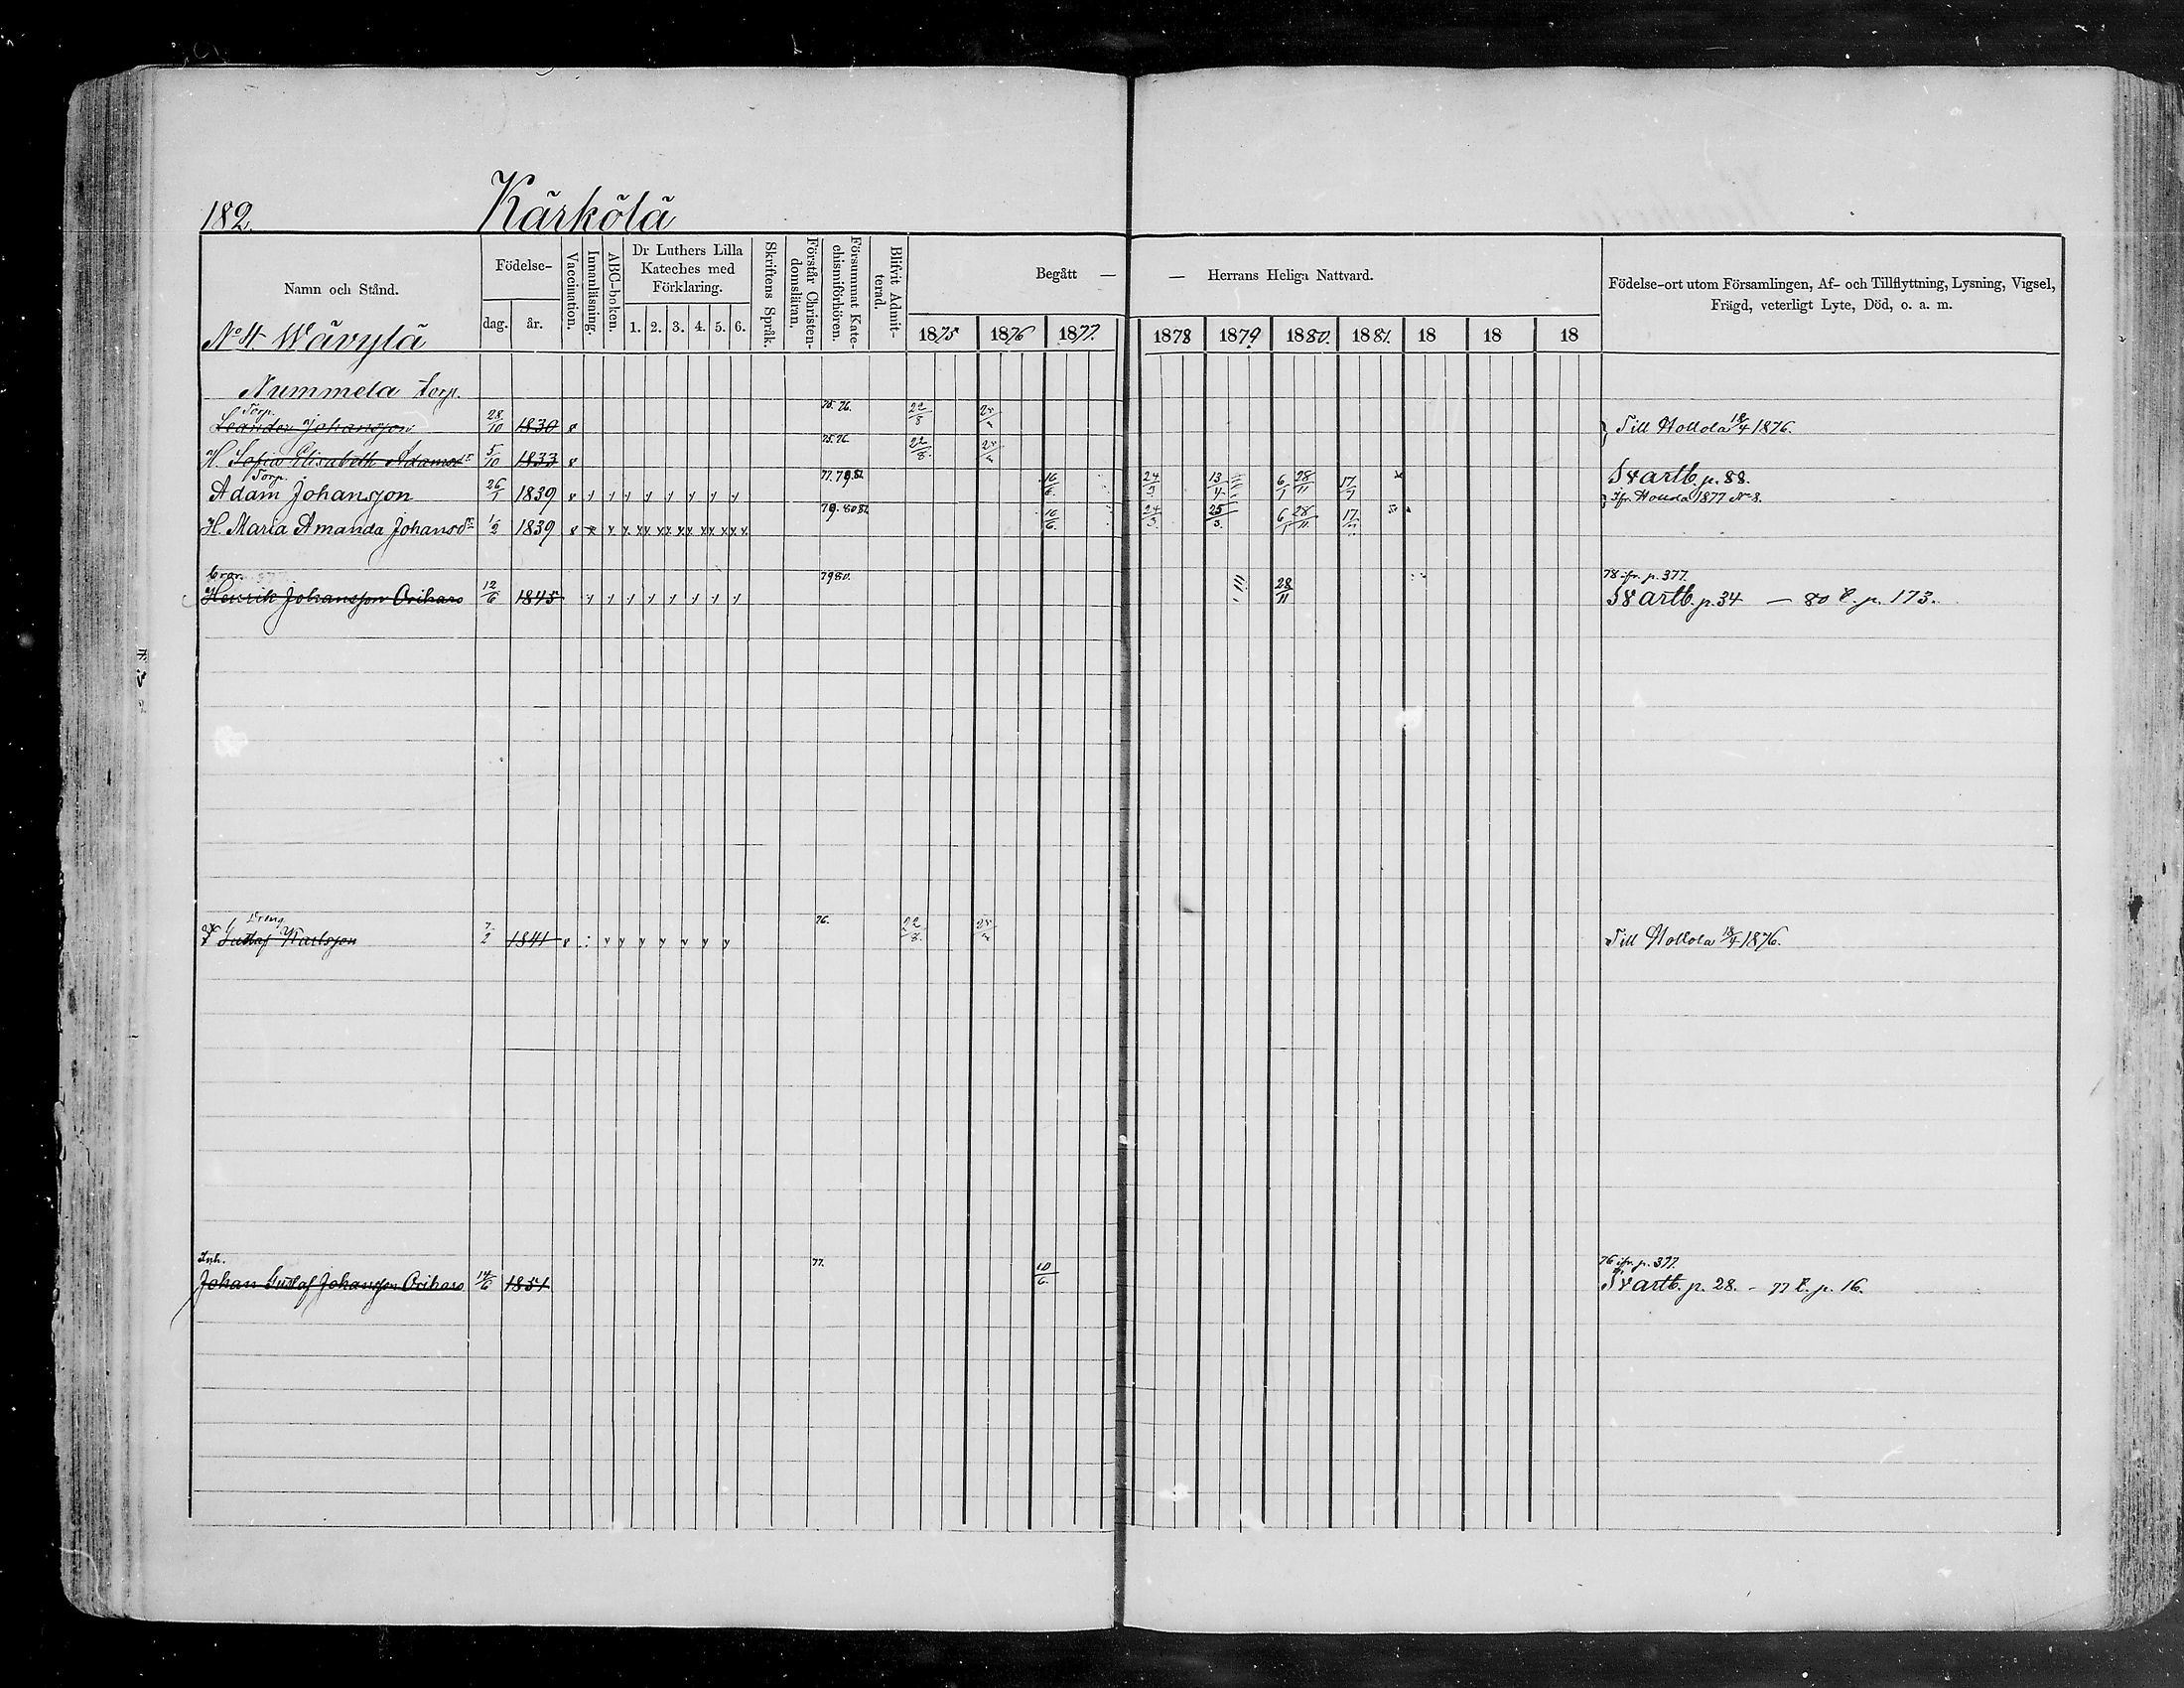 182. Kärkölä
Namn och Stånd.
Födelse-
dag. år.
Vaccination.
Innanläsning.
ABC-boken.
Dr Luthers Lilla
Kateches med
Förklaring.
1. 2. 3. 4. 5. 6.
Skriftens Språk.
Förstår Christen-
domsläran.
Försummat Kate-
chismiförhören.
Blifvit Admit-
terad.
Begått — — Herrans Heliga Nattvard.
1875 1876 1877. 1878 1879 1880. 1881. 18 18 18
Födelse-ort utom Församlingen, Af- och Tillflyttning, Lysning, Vigsel,
Frägd, veterligt Lyte, Död, o. a. m.
No 4. Wävylä
Nummela torp.
Torp. 75. 76.
Leander Johansson 28/10 1830 22/8 Till Hollola 18/4 1876.
75. 76.
H. Sofia Elisabeth Adamsdr 5/10 1833 22/8.
Torp. 77. 79.
Adam Johansson 26/1 1839 y y y y y y y y 10/6. 24/3 13/4 6/1 28/11 17/7 Svartb. p. 88.
79. 80 Ifr. Hollola 1877 No 8.
H. Maria Amanda Johansdr 1/2 1839 10/6. 24/3. 25/3. 6/1 28/11 17/7
79 80. 78 ifr. p. 377.
Henrik Johansson Oriharo 12/6 1845 y y y y y y y y 28/11 Svartb. p. 34 — 80 t. p. 173.
Dreng 76.
Gustaf Karlsson 7/2 1841 y y y y y y y 22/8. Till Hollola 18/4 1876.
Inh. 77. 76 ifr. p. 377.
Johan Gustaf Johansson Oriharo 14/6 1851 10/6. Svartb. p. 28. - 77 t. p. 16.